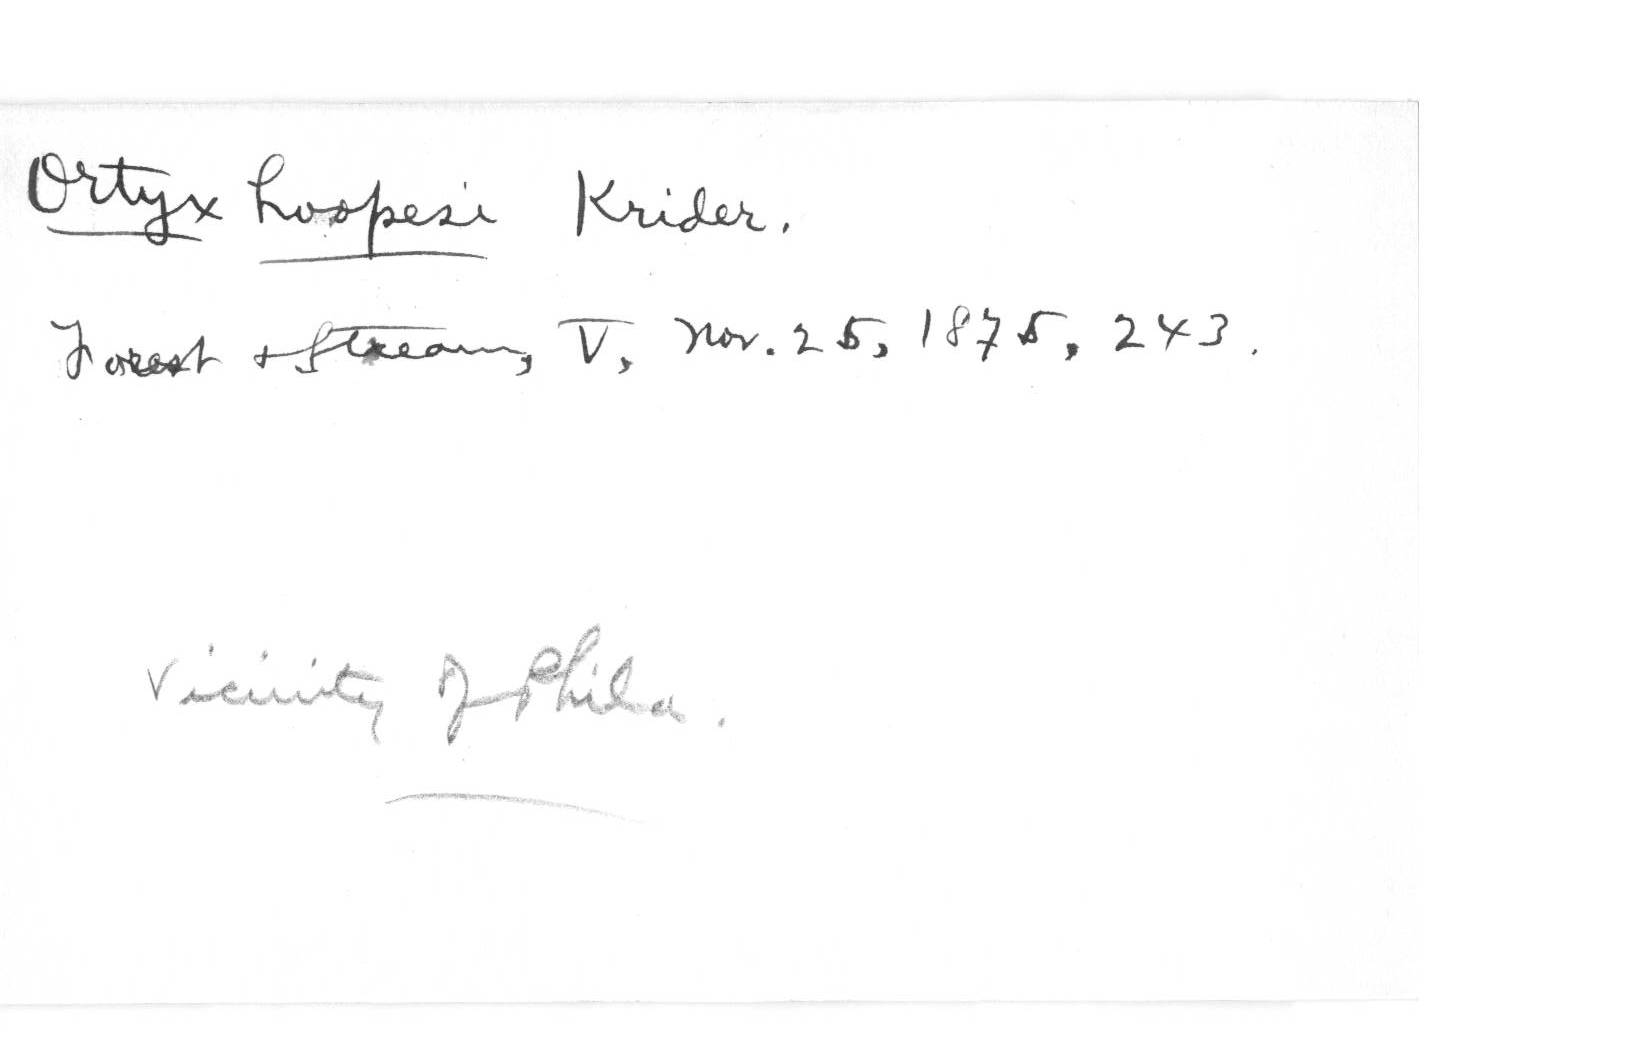 Ortyx hoopesi Krider.
Forest + Stream, V, Nov. 25, 1875, 243.
Vicinity of Phila.